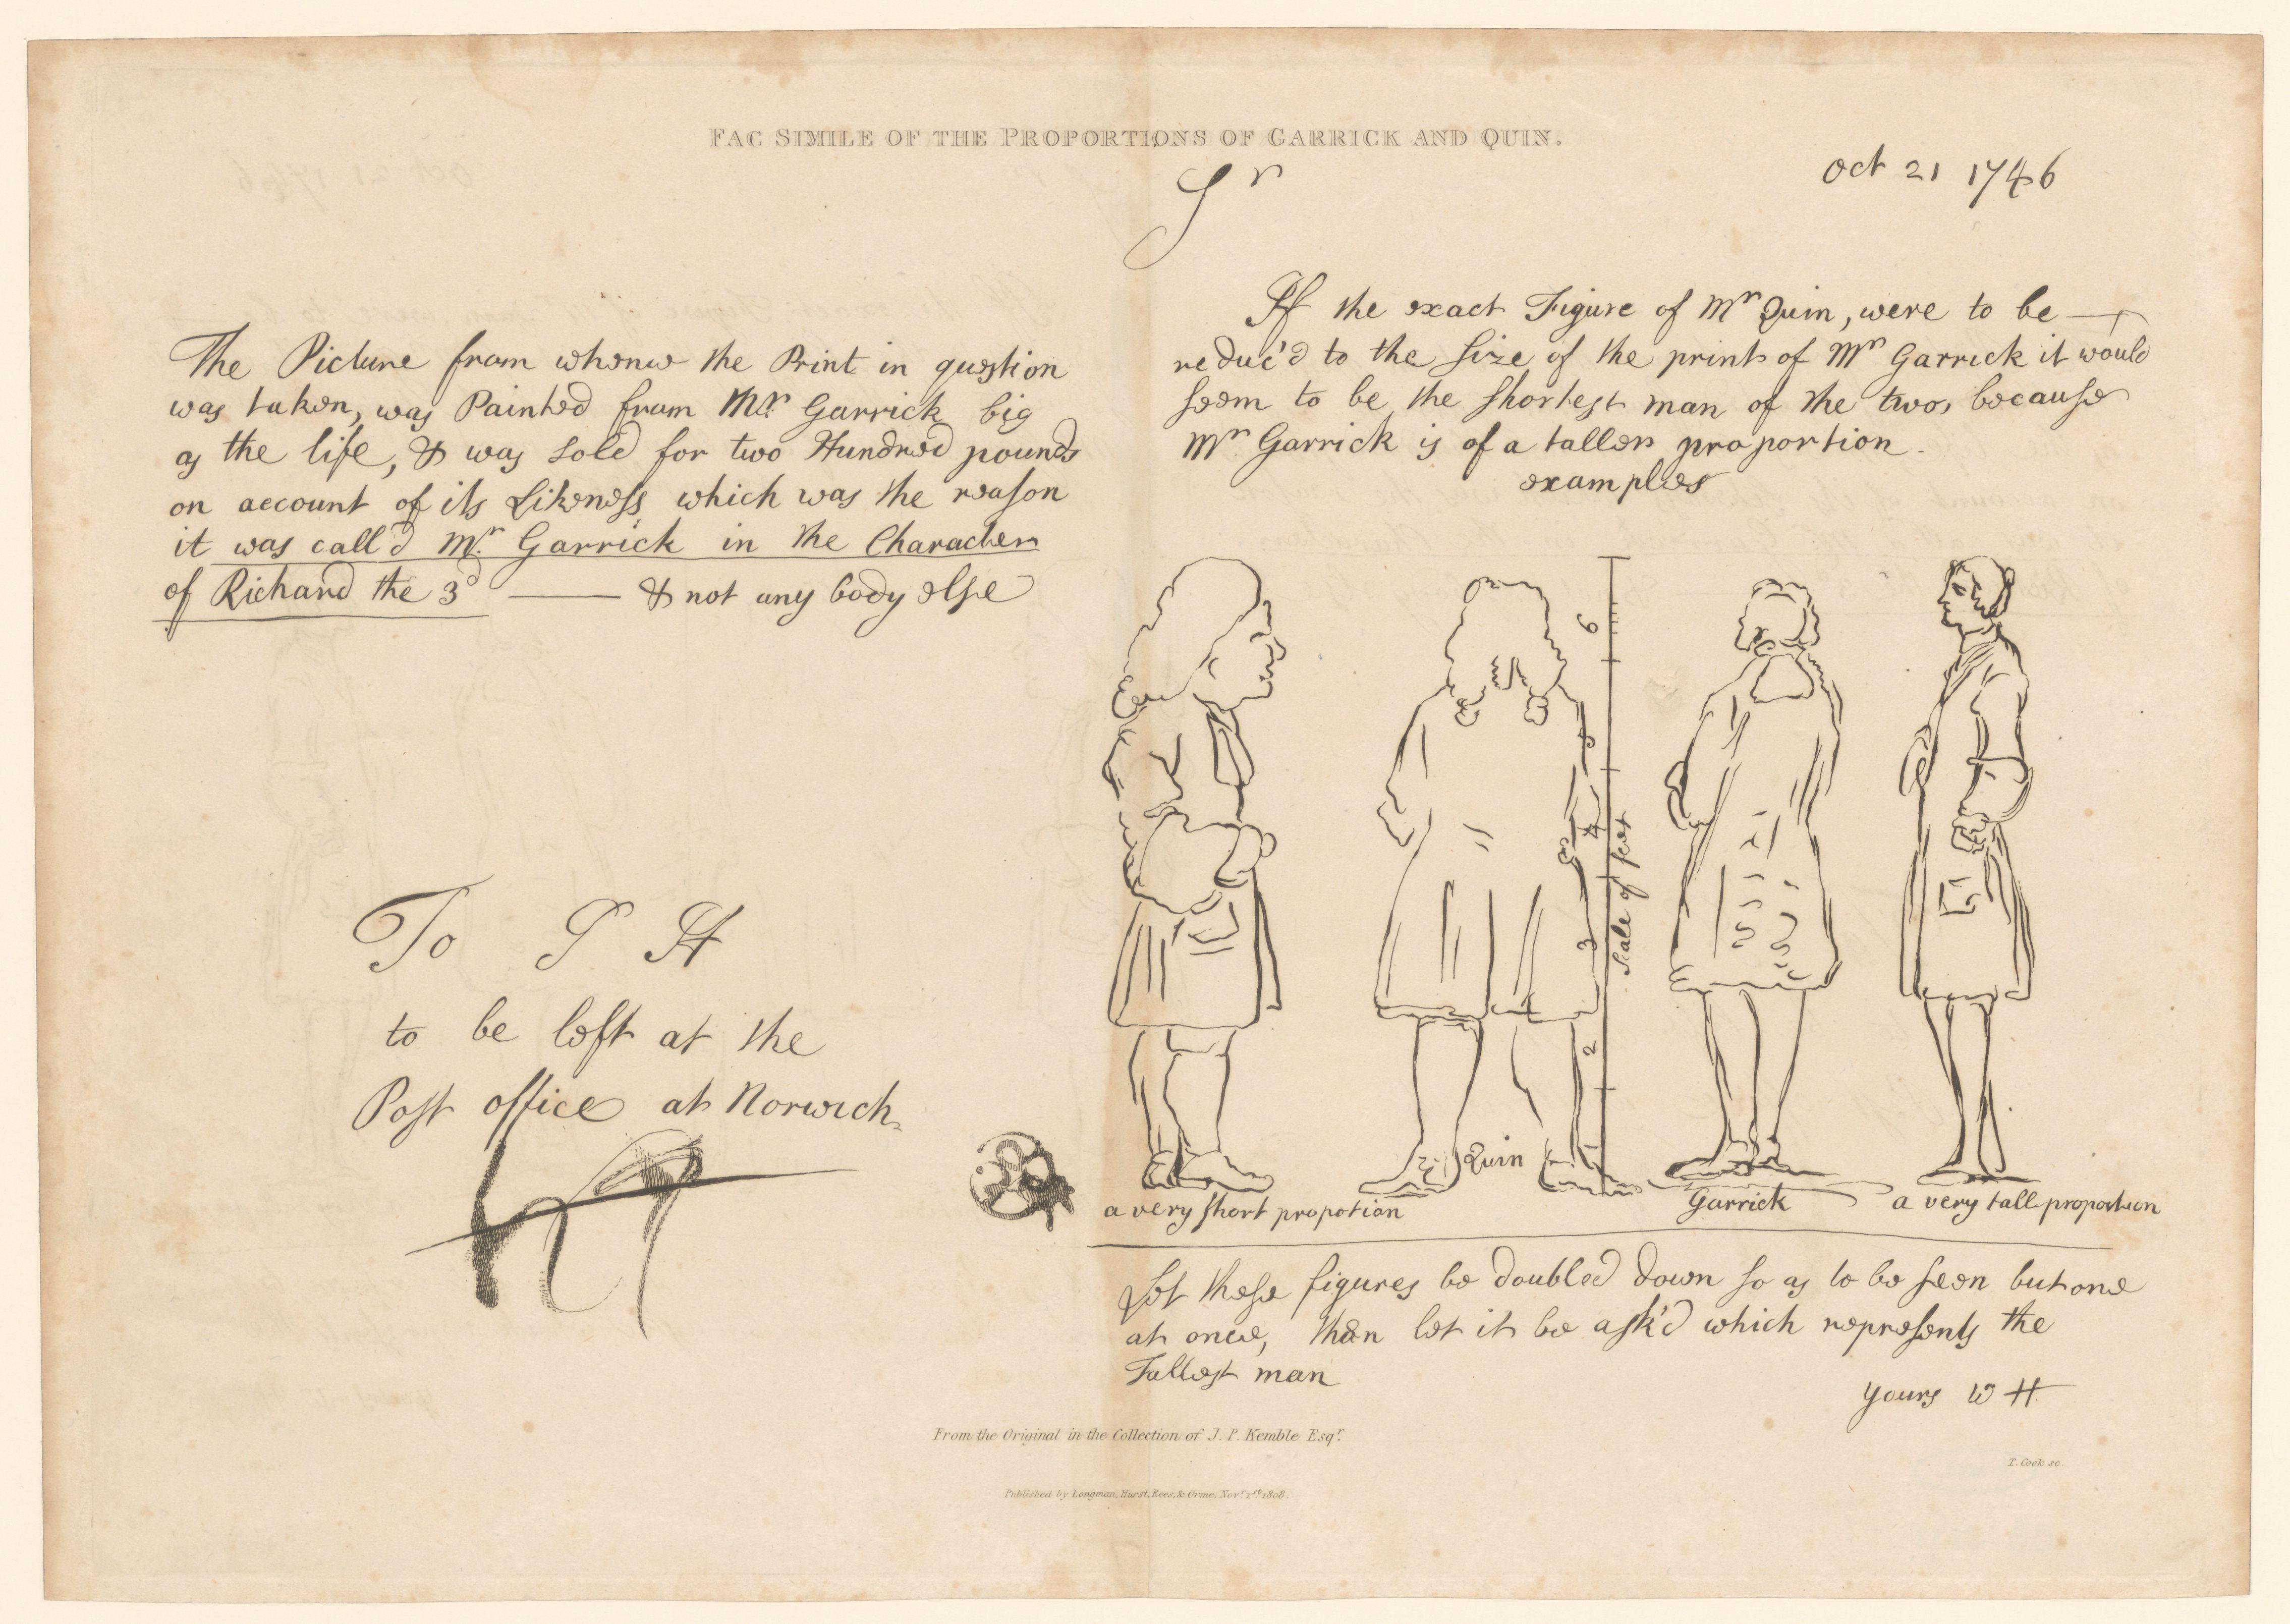 FAC SIMILE OF THE PROPORTIONS OF GARRICK AND QUIN.
Oct 21 1746
Sr
If the exact Figure of Mr Quin, were to be
reduc'd to the size of the print of Mr Garrick it would
seem to be the shortest man of the two, because
Mr Garrick is of a taller proportion.
examples
6
5
4
3
2
1
Scale of feet
Quin
a very short propotion
Garrick
a very tall proportion
Let these figures be doubled down so as to be seen but one
at once, then let it be ask'd which represents the
Tallest man
yours W H
The Picture from whence the Print in question
was taken, was Painted from Mr. Garrick big
as the life, & was sold for two Hundred pounds
on account of its Likeness, which was the reason
it was call'd Mr. Garrick in the Character
of Richard the 3d & not any body else
To T H
to be left at the
Post office at Norwich
From the Original in the Collection of J. P. Kemble Esqr.
Published by Longman, Hurst, Rees, & Orme, Novr. 1st 1808
T. Cook sc